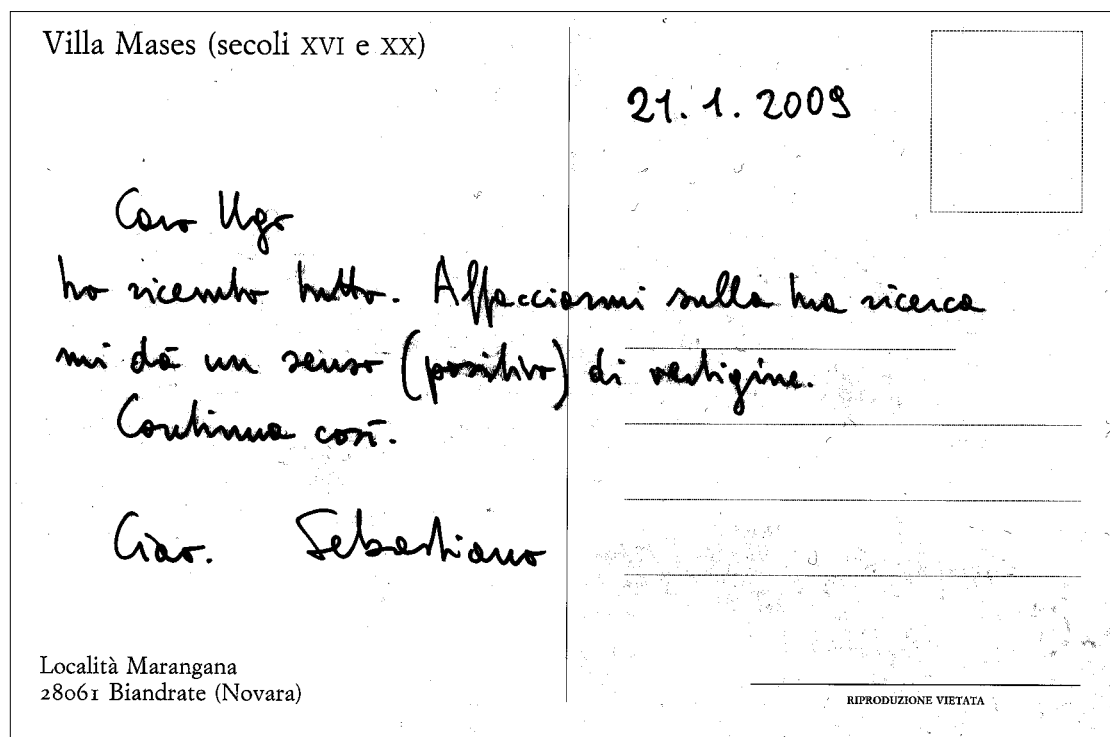 Villa Mases (secoli XVI e XX)
21. 1. 2009
Caro Ugo
ho ricevuto tutto. Affacciarmi sulla tua ricerca
mi dà un senso (positivo) di vertigine.
Continua così.
Ciao. Sebastiano
Località Marangana
28061 Biandrate (Novara)
RIPRODUZIONE VIETATA